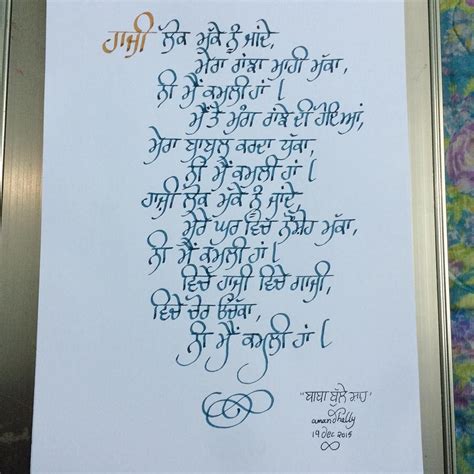 ਹਾਜੀ ਲੋਕ ਮੱਕੇ ਨੂੰ ਜਾਂਦੇ,
ਮੇਰਾ ਰਾਂਝਾ ਮਾਹੀ ਮੱਕਾ,
ਨੀ ਮੈਂ ਕਮਲੀ ਹਾਂ |
ਮੈਂ ਤੇ ਮੰਗ ਰਾਂਝੇ ਦੀ ਹੋਈਆਂ,
ਮੇਰਾ ਬਾਬੁਲ ਕਰਦਾ ਧੱਕਾ,
ਨੀ ਮੈਂ ਕਮਲੀ ਹਾਂ |
ਹਾਜੀ ਲੋਕ ਮੱਕੇ ਨੂੰ ਜਾਂਦੇ,
ਮੇਰੇ ਘਰ ਵਿਚ ਨੌਸ਼ੋਹ ਮੱਕਾ,
ਨੀ ਮੈਂ ਕਮਲੀ ਹਾਂ |
ਵਿਚੇ ਹਾਜੀ ਵਿਚੇ ਗਾਜੀ,
ਵਿਚੇ ਚੋਰ ਉਚੱਕਾ,
ਨੀ ਮੈਂ ਕਮਲੀ ਹਾਂ |
"ਬਾਬਾ ਬੁੱਲੇ ਸ਼ਾਹ"
amandhally
19 Dec 2015